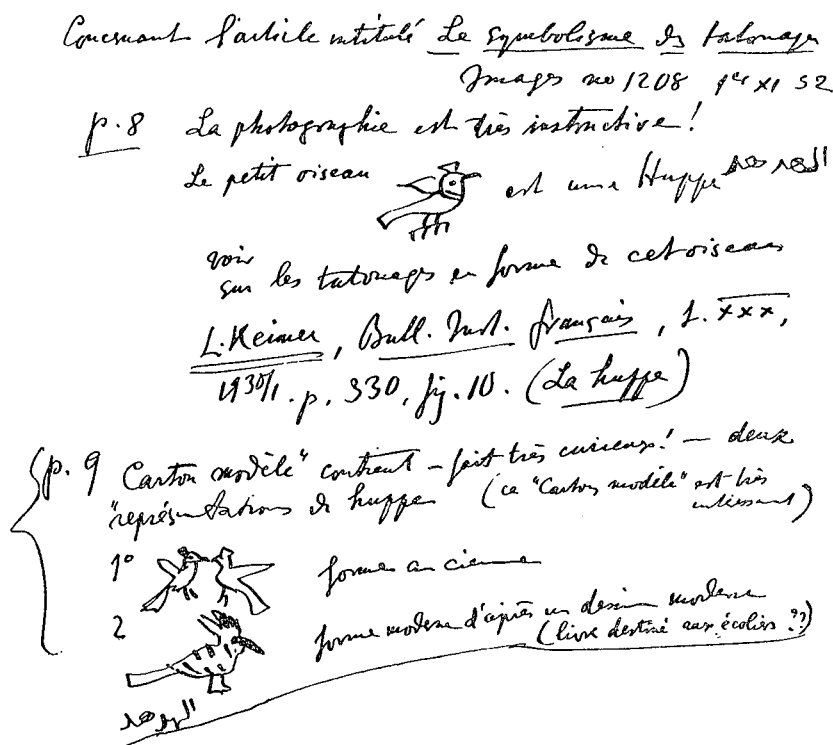 Concernant l'article intitulé Le symbolisme des tatouages
Images no 1208 1er XI 52
p. 8 La photographie est très instructive!
Le petit oiseau est une Huppe الهدهد
voir
sur les tatouages en forme de cet oiseau
L. Keimer, Bull. Inst. français, t. XXX,
1930/1. p. 330, fig. 10. (La huppe)
p. 9 Carton modèle" contient - fait très curieux! - deux
"représentations de huppe (ce "Carton modèle" est très
intéressant)
1º forme ancienne
2 forme moderne d'après un dessin moderne
(livre destiné aux écoliers ??)
الهدهد